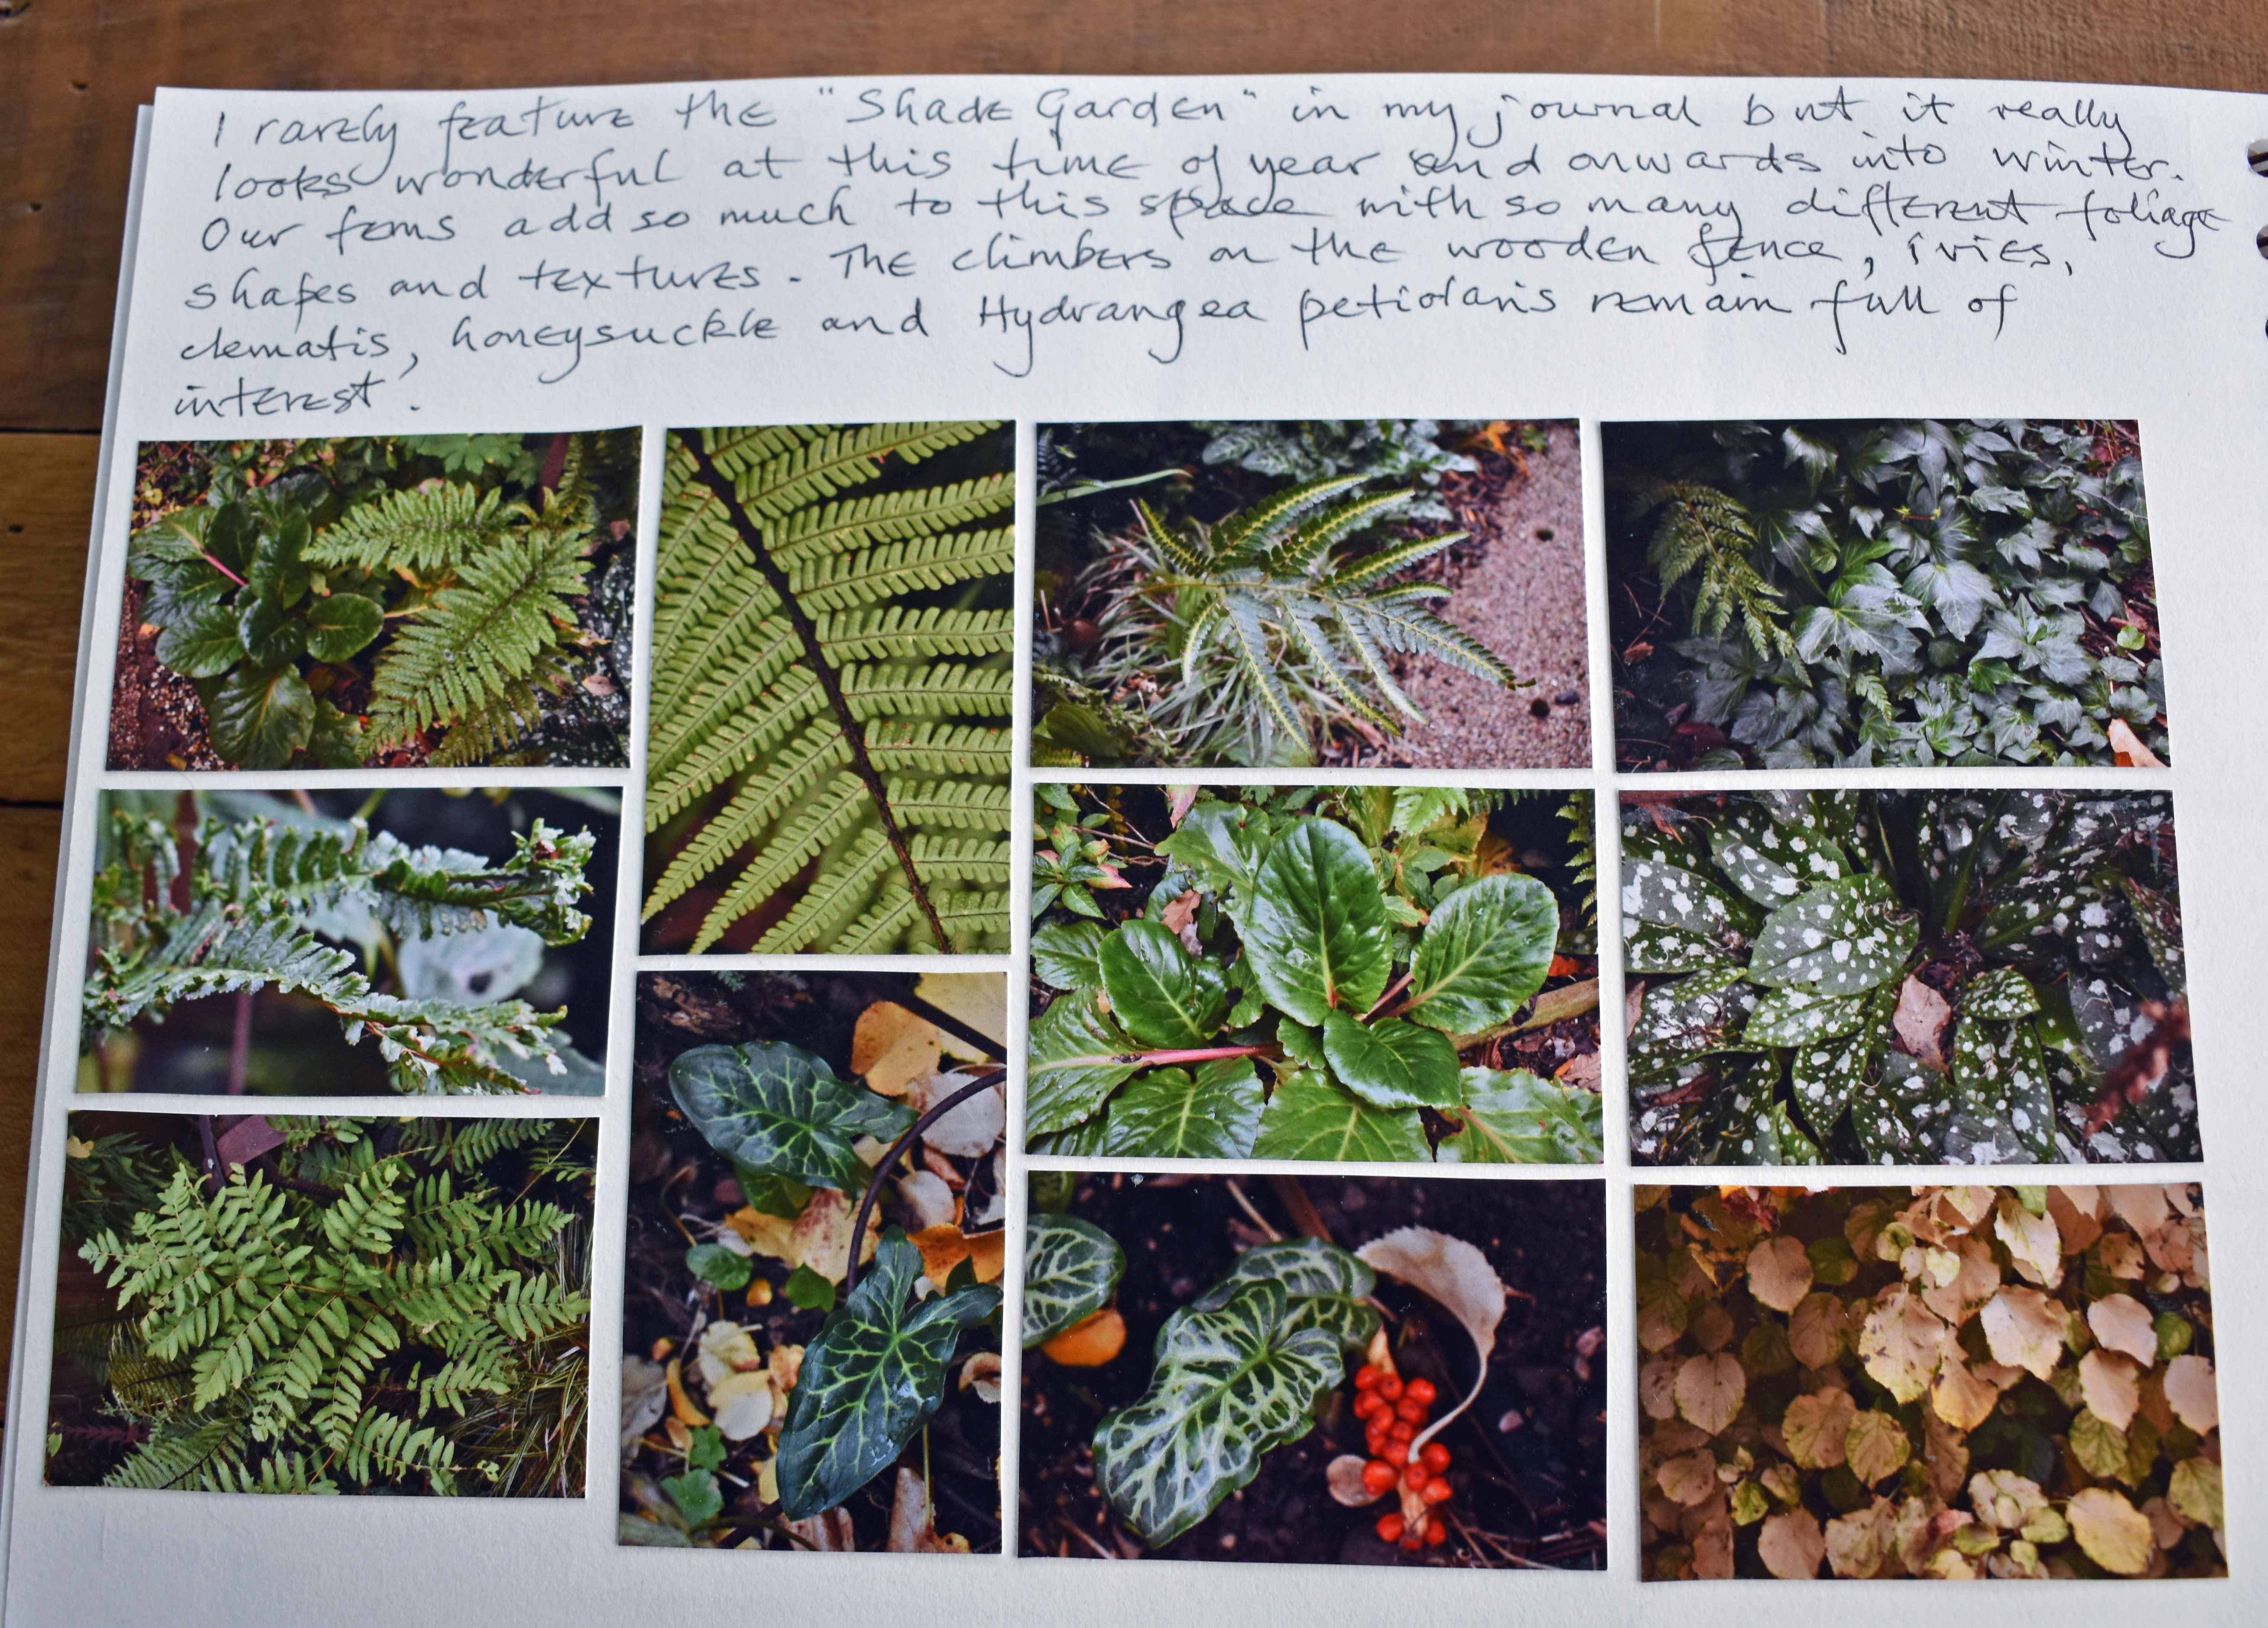 I rarely feature the "Shade Garden" in my journal but it really
looks wonderful at this time of year and onwards into winter.
Our ferns add so much to this space with so many different foliage
shapes and textures. The climbers on the wooden fence, ivies,
clematis, honeysuckle and Hydrangea petiolaris remain full of
interest.